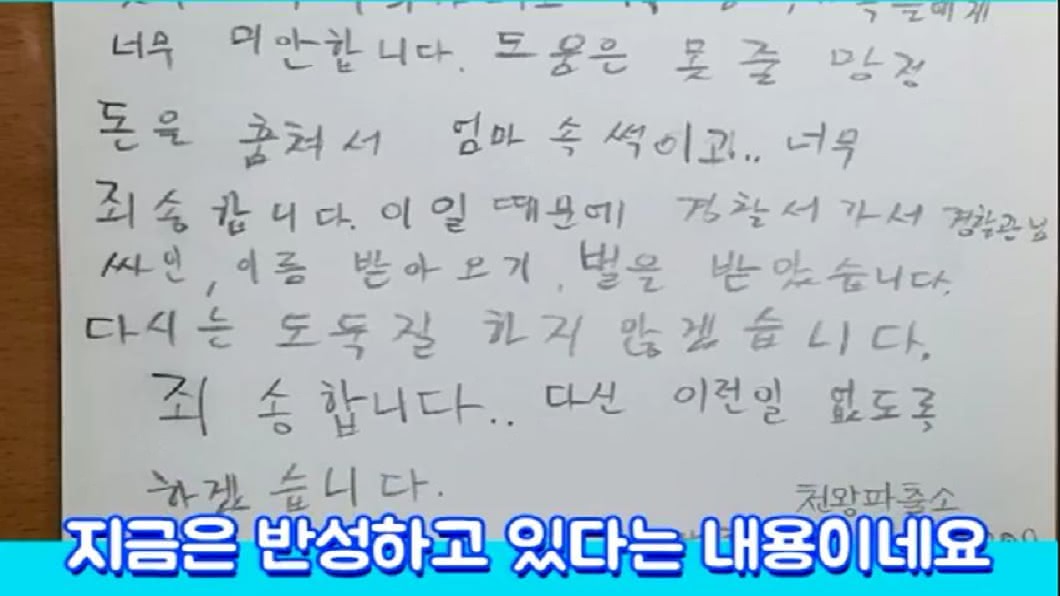 너무 미안합니다. 도움은 못 줄 망정
돈을 훔쳐서 엄마 속 썩이고.. 너무
죄송합니다. 이일 때문에 경찰서 가서 경찰관님
싸인, 이름 받아오기, 벌을 받았습니다.
다시는 도둑질 하지 않겠습니다.
죄송합니다.. 다신 이런일 없도록
하겠습니다.
천왕파출소
지금은 반성하고 있다는 내용이네요